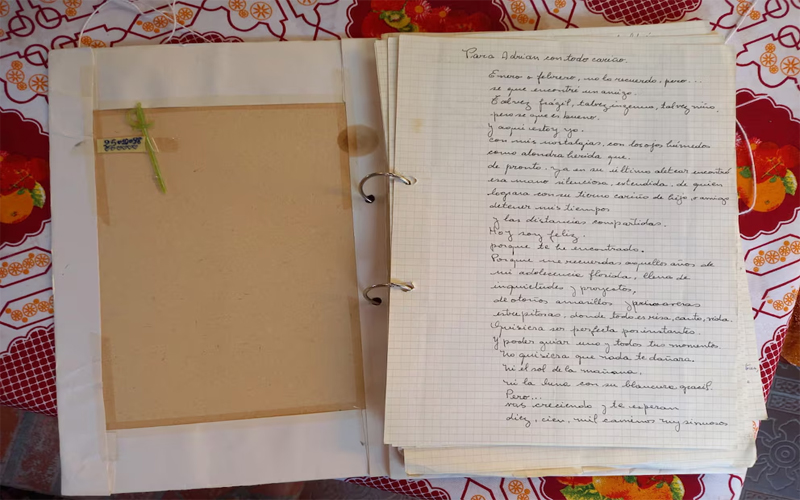 Para Adrian con todo cariño.
Enero o febrero, no lo recuerdo, pero...
se que encontré un amigo.
Talvez frágil, talvez ingenuo, talvez niño,
pero se que es bueno.
Y aqui estoy yo.
con mis nostalgias, con los ojos húmedos
como alondra herida que.
de pronto. ya en su último aletear encontró
esa mano silenciosa, extendida, de quien
lograra con su tierno cariño de hijo, o amigo
detener mis tiempos
y las distancias compartidas.
Hoy soy feliz.
porque te he encontrado.
Porque me recuerdas aquellos años de
mi adolecencia florida, llena de
inquietudes y proyectos,
de otoños amarillos y primaveras
estrepitosas. donde todo es risa, canto, vida.
Quisiera ser perfecta por instantes.
Y poder guiar uno y todos tus momentos
No quisiera que nada te dañara.
Ni el sol de la mañana.
ni la luna con su blancura gracil.
Pero...
vas creciendo y te esperan
diez, cien, mil caminos muy sinuosos